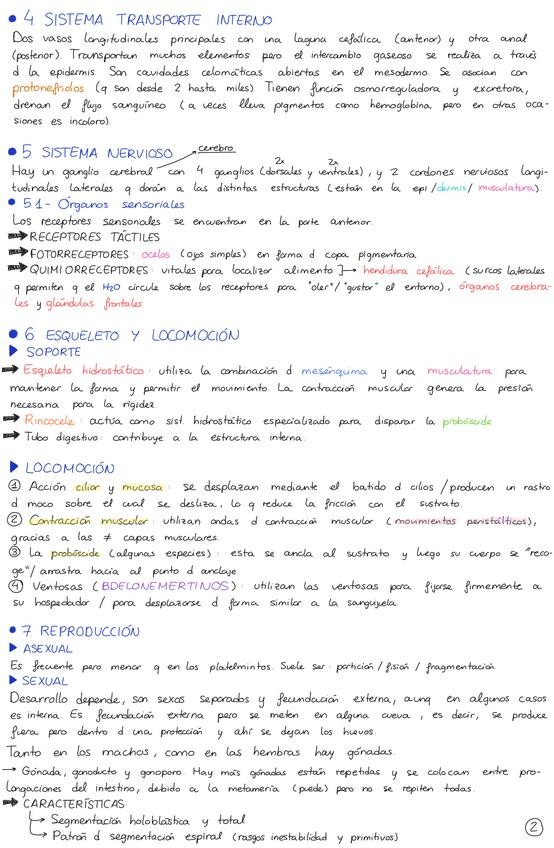 • 4 SISTEMA TRANSPORTE INTERNO
Dos vasos longitudinales principales con una laguna cefálica (anterior) y otra anal
(posterior). Transportan muchos elementos pero el intercambio gaseoso se realiza a través
d la epidermis. Son cavidades celomáticas abiertas en el mesodermo. Se asocian con
protonefridios (q son desde 2 hasta miles) Tienen función osmorreguladora y excretora,
drenan el flujo sanguíneo (a veces lleva pigmentos como hemoglobina pero en otras oca-
siones es incoloro).
• 5 SISTEMA NERVIOSO
cerebro
2x 2x
Hay un ganglio cerebral con 4 ganglios (dorsales y ventrales), y 2 cordones nerviosos longi-
tudinales laterales q darán a las distintas estructuras (están en la epi/dermis/musculatura).
• 5.1- Órganos sensoriales
Los receptores sensoriales se encuentran en la parte anterior.
➡ RECEPTORES TÁCTILES
➡ FOTORRECEPTORES: ocelos (ojos simples) en forma d copa pigmentaria
➡ QUIMIORRECEPTORES: vitales para localizar alimento ]→ hendidura cefálica (surcos laterales
q permiten q el H2O circule sobre los receptores para "oler"/"gustar" el entorno), órganos cerebra-
les y glándulas frontales
• 6 ESQUELETO Y LOCOMOCIÓN
▶ SOPORTE
➡ Esqueleto hidrostático: utiliza la combinación d mesénquima y una musculatura para
mantener la forma y permitir el movimiento. La contracción muscular genera la presión
necesaria para la rigidez.
➡ Rincocele: actúa como sist. hidrostático especializado para disparar la probóscide
➡ Tubo digestivo: contribuye a la estructura interna.
▶ LOCOMOCIÓN
① Acción ciliar y mucosa: se desplazan mediante el batido d cilios / producen un rastro
d moco sobre el cual se desliza, lo q reduce la fricción con el sustrato.
② Contracción muscular: utilizan ondas d contracción muscular (movimientos peristálticos),
gracias a las ≠ capas musculares.
③ La probóscide (algunas especies): esta se ancla al sustrato y luego su cuerpo se "reco-
ge"/arrastra hacia al punto d anclaje.
④ Ventosas (BDELONEMERTINOS): utilizan las ventosas para fijarse firmemente a
su hospedador / para desplazarse d forma similar a la sanguijuela.
• 7 REPRODUCCIÓN
▶ ASEXUAL
Es frecuente pero menor q en los platelmintos. Suele ser: partición / fisión / fragmentación.
▶ SEXUAL
Desarrollo depende, son sexos separados y fecundación externa, aunq en algunos casos
es interna. Es fecundación externa pero se meten en alguna cueva, es decir, se produce
fuera pero dentro d una protección y ahí se dejan los huevos.
Tanto en los machos, como en las hembras hay gónadas.
→ Gónada, gonoducto y gonoporo. Hay más gónadas están repetidas y se colocan entre pro-
longaciones del intestino, debido a la metamería (puede) pero no se repiten todas.
➡ CARACTERÍSTICAS:
↳ Segmentación holoblástica y total
↳ Patrón d segmentación espiral (rasgos inestabilidad y primitivos)
②